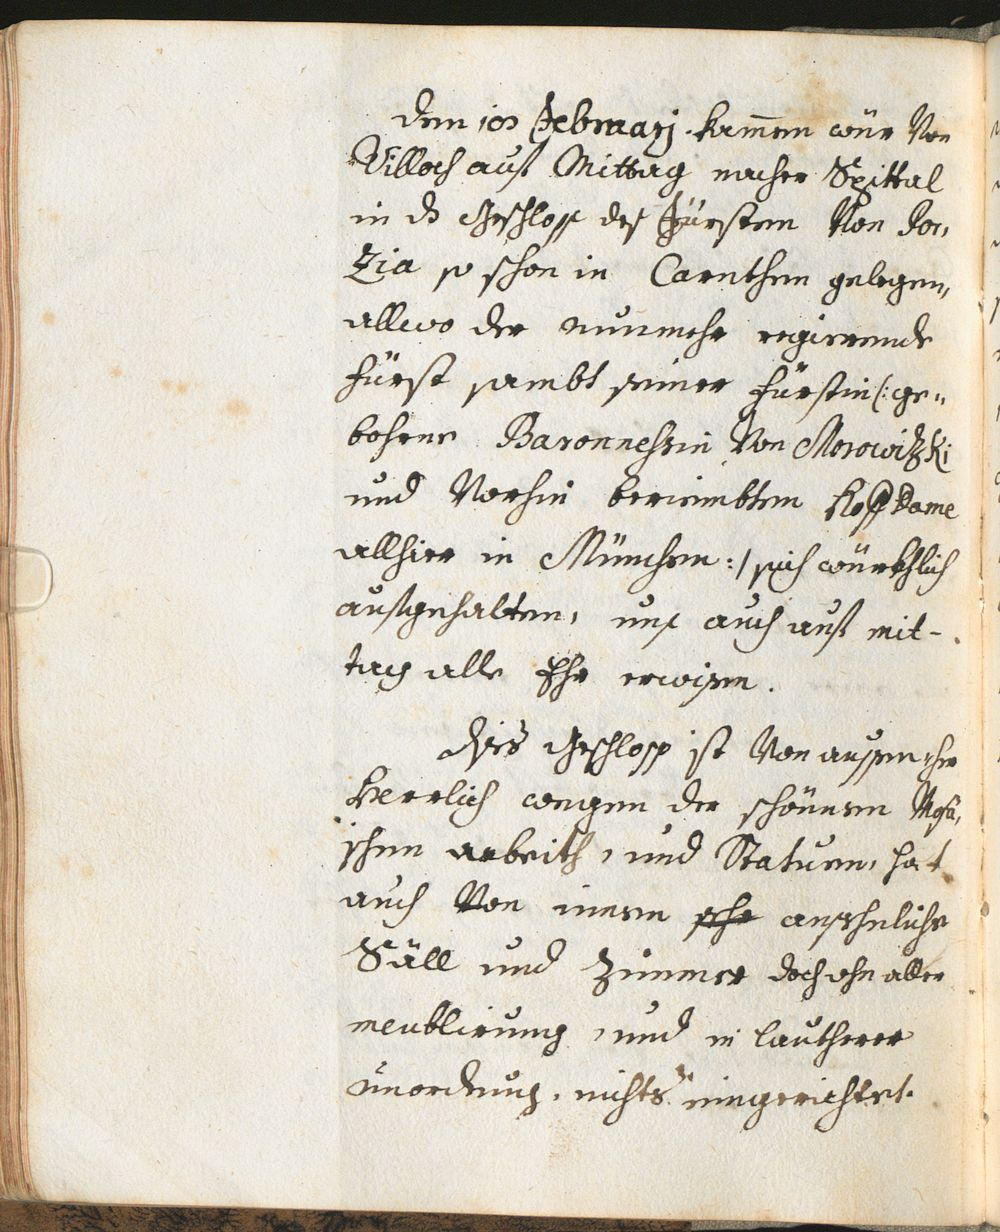 den 10t Februarj kam̄en wür Von
Villach auf Mittag nacher Spittal
in dz Geschloss des Fürsten Von Por,
zia so schon in Carnthen gelegen,
allwo der nunmehr regierende
Fürst sambt seiner Fürstin (: ge„
bohrne Baronnessin Von Morowitzki
und Vorhin beriembten Hoff Dame
allhier in München :/ sich würkhlich
aufgehalten, uns auch auf mit-
tag alle Ehr erwisen.
Diss Geschloss ist Von aussen her
herrlich wegen der schönnen Mosa,
ischen arbeith, und Statuen, hat
auch Von innen sehr ansehnliche
Säll und Zimmer doch ohn aller
meublirung, und in lautherer
unordnung, nichts eingerichtet.